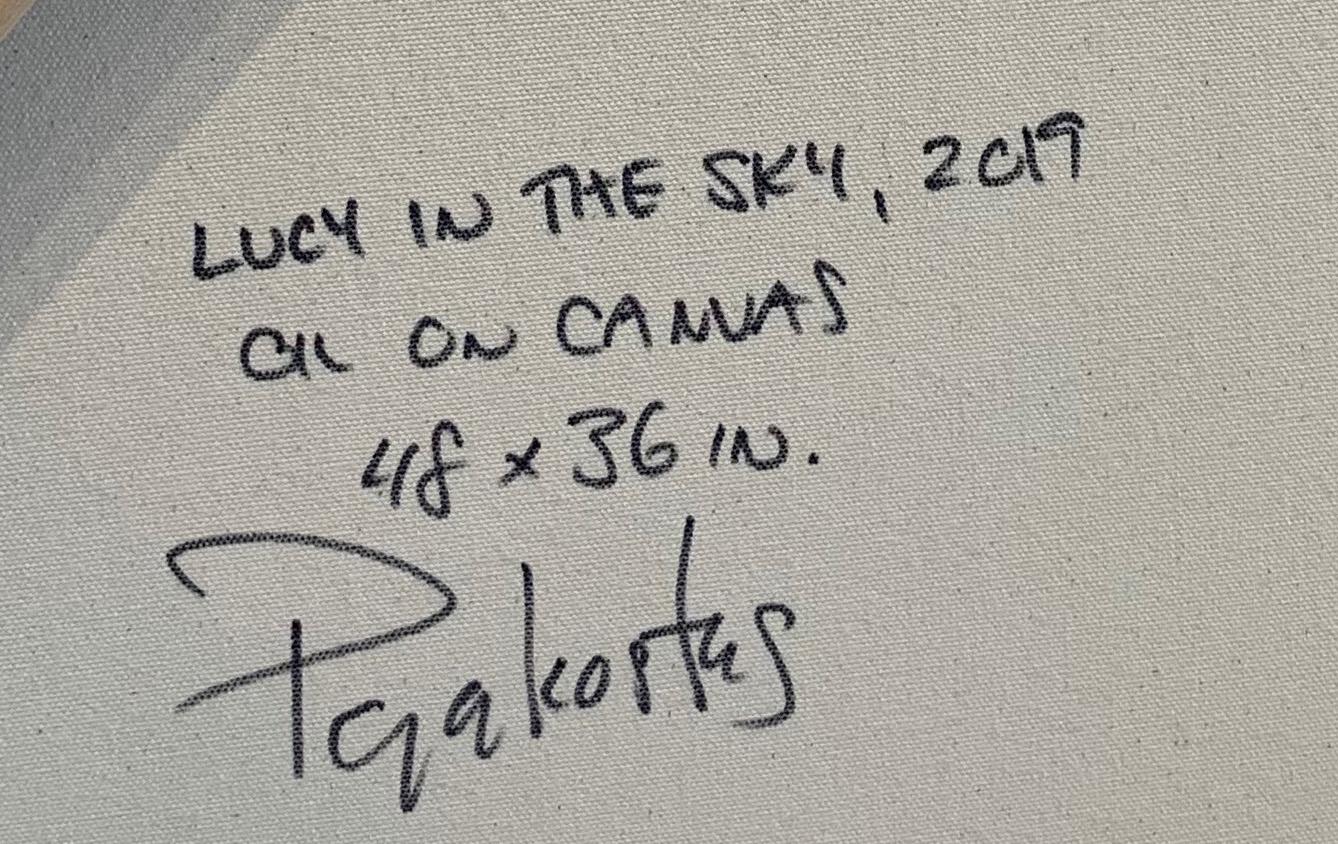 LUCY IN THE SKY, 2019
OIL ON CANVAS
48 x 36 IN.